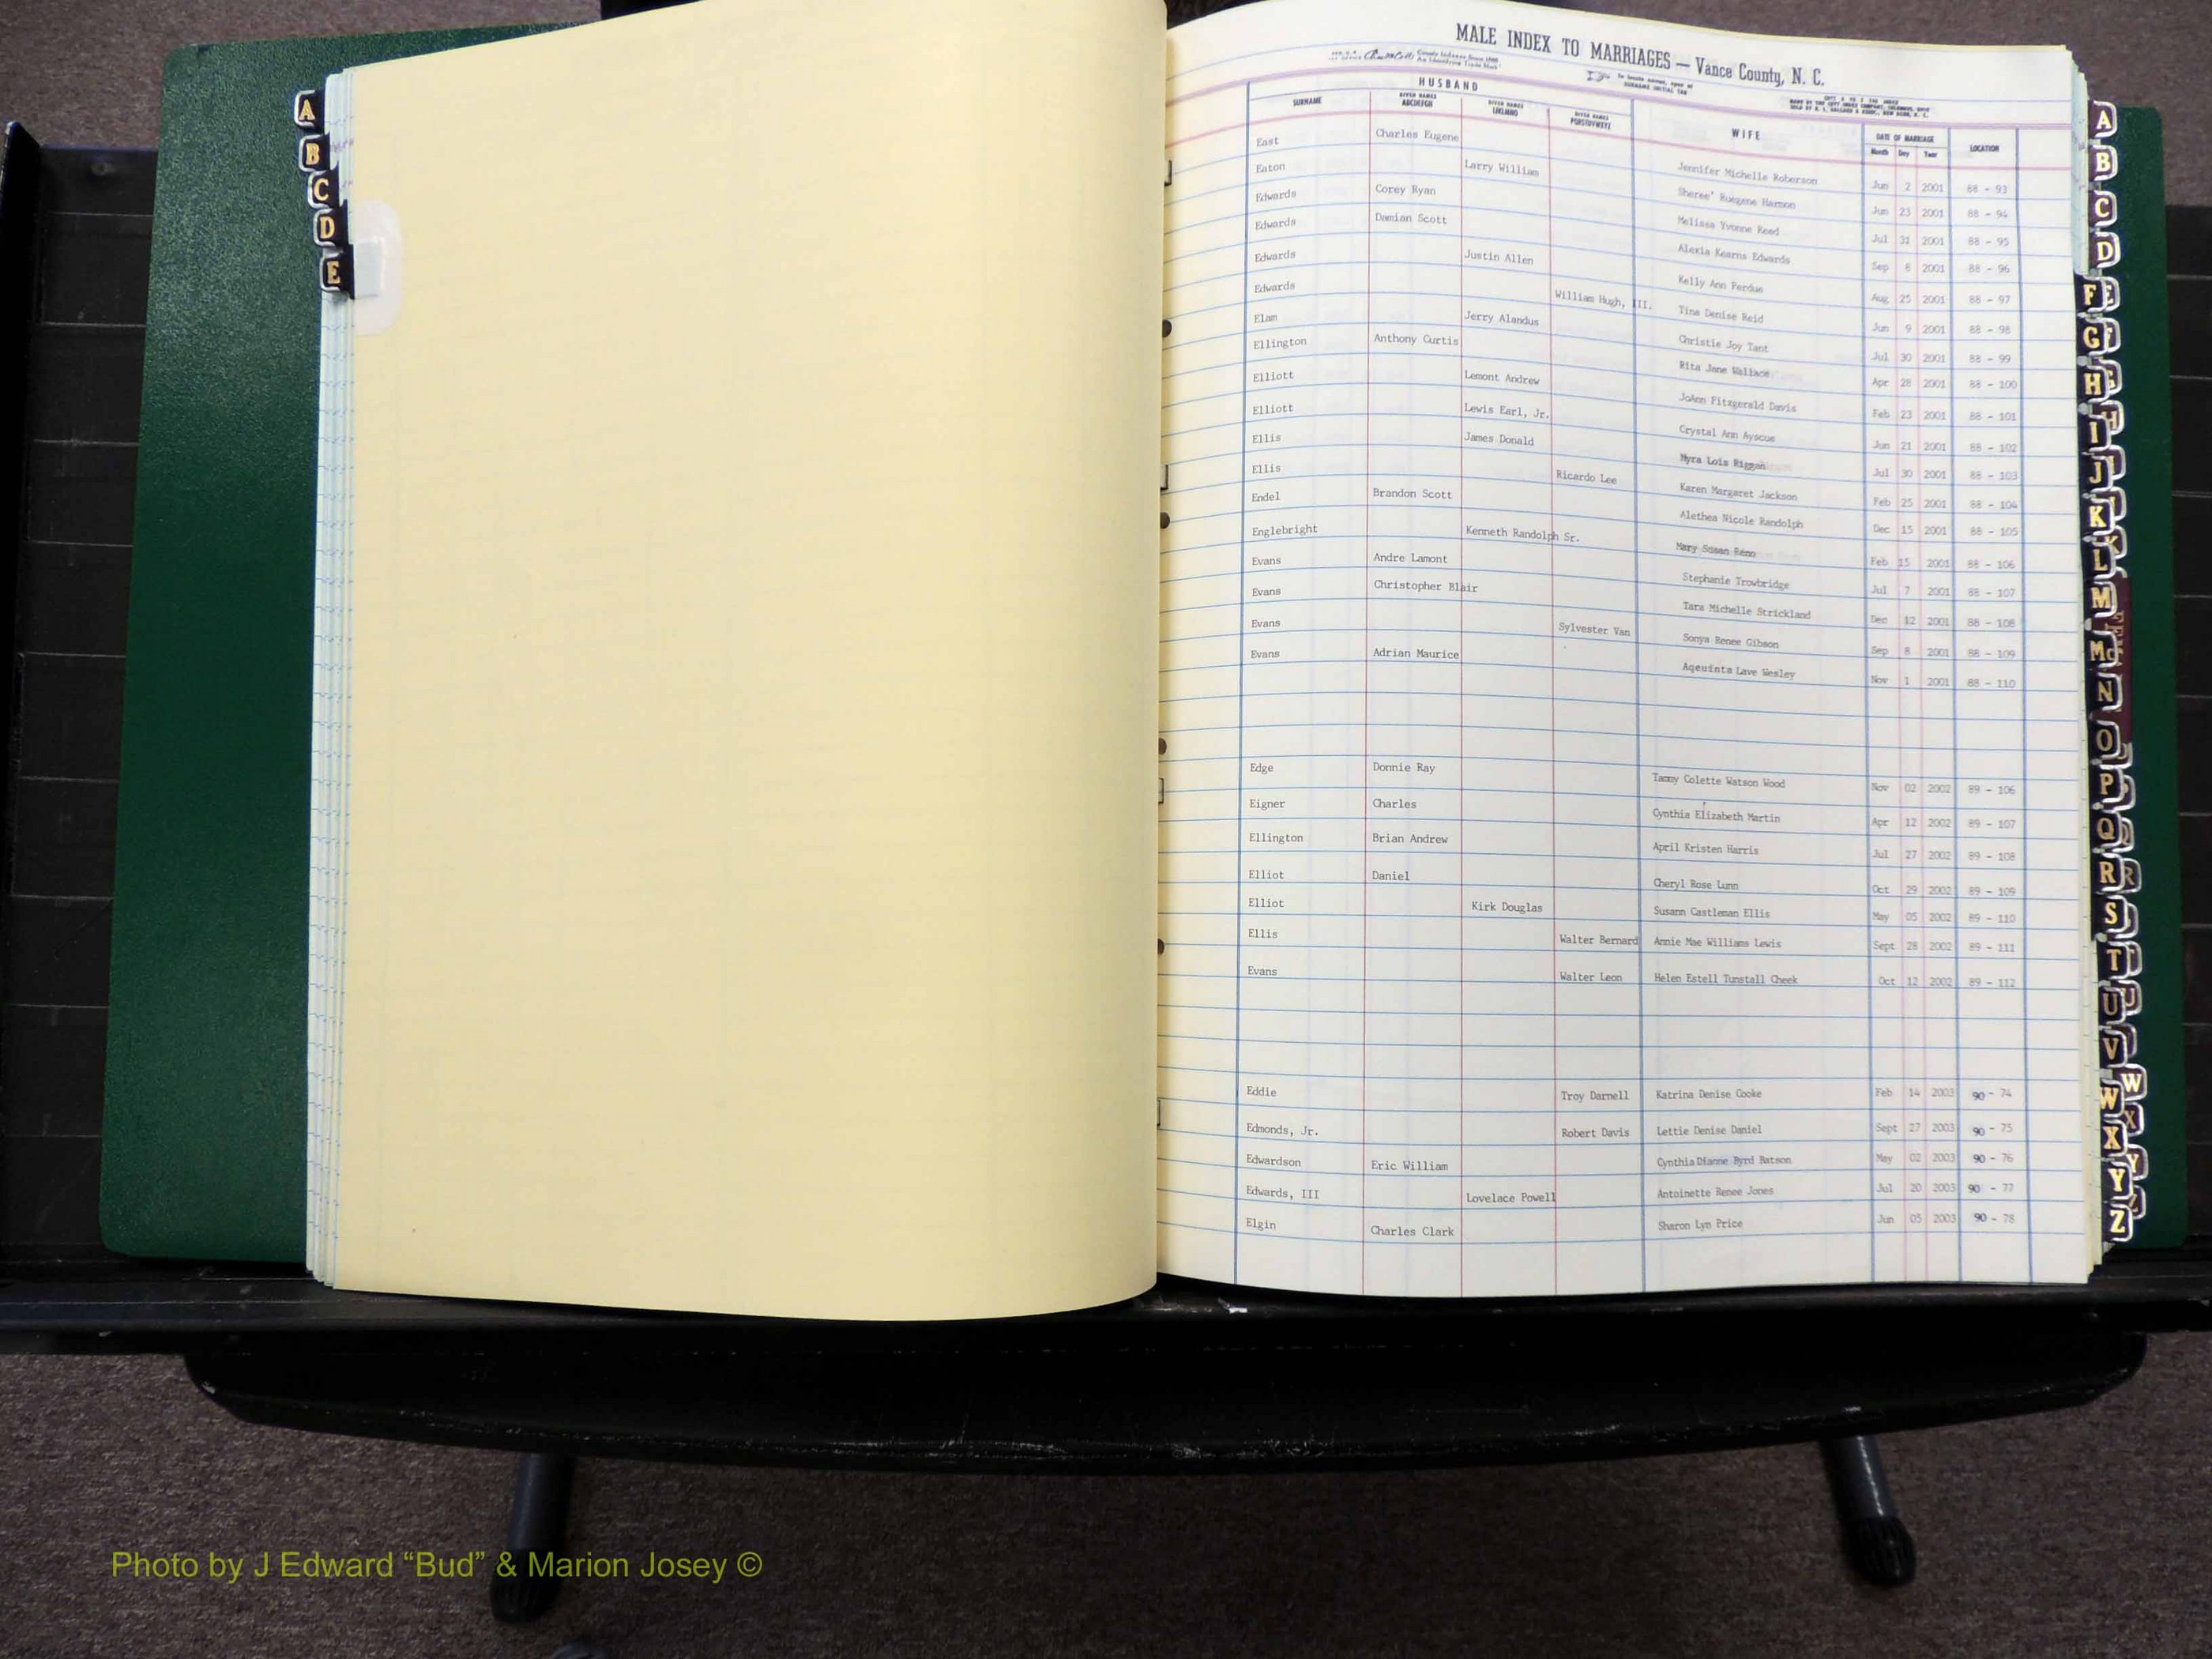 MALE INDEX TO MARRIAGES — Vance County, N. C.
County Indexes Since 1888
An Identifying Trade Mark
To locate names, open at
SURNAME INITIAL TAB
HUSBAND
SURNAME GIVEN NAMES ABCDEFGH GIVEN NAMES IJKLMNO GIVEN NAMES PQRSTUVWXYZ WIFE DATE OF MARRIAGE Month Day Year LOCATION
East Charles Eugene Jennifer Michelle Roberson Jun 2 2001 88 - 93
Eaton Larry William Sheree' Ruegene Harmon Jun 23 2001 88 - 94
Edwards Corey Ryan Melissa Yvonne Reed Jul 31 2001 88 - 95
Edwards Damian Scott Alexia Kearns Edwards Sep 8 2001 88 - 96
Edwards Justin Allen Kelly Ann Perdue Aug 25 2001 88 - 97
Edwards William Hugh, III. Tina Denise Reid Jun 9 2001 88 - 98
Elam Jerry Alandus Christie Joy Tant Jul 30 2001 88 - 99
Ellington Anthony Curtis Rita Jane Wallace Apr 28 2001 88 - 100
Elliott Lemont Andrew JoAnn Fitzgerald Davis Feb 23 2001 88 - 101
Elliott Lewis Earl, Jr. Crystal Ann Ayscue Jun 21 2001 88 - 102
Ellis James Donald Myra Lois Riggan Jul 30 2001 88 - 103
Ellis Ricardo Lee Karen Margaret Jackson Feb 25 2001 88 - 104
Endel Brandon Scott Alethea Nicole Randolph Dec 15 2001 88 - 105
Englebright Kenneth Randolph Sr. Mary Susan Reno Feb 15 2001 88 - 106
Evans Andre Lamont Stephanie Trowbridge Jul 7 2001 88 - 107
Evans Christopher Blair Tara Michelle Strickland Dec 12 2001 88 - 108
Evans Sylvester Van Sonya Renee Gibson Sep 8 2001 88 - 109
Evans Adrian Maurice Aqeuinta Lave Wesley Nov 1 2001 88 - 110
Edge Donnie Ray Tammy Colette Watson Wood Nov 02 2002 89 - 106
Eigner Charles Cynthia Elizabeth Martin Apr 12 2002 89 - 107
Ellington Brian Andrew April Kristen Harris Jul 27 2002 89 - 108
Elliot Daniel Cheryl Rose Lunn Oct 29 2002 89 - 109
Elliot Kirk Douglas Susann Castleman Ellis May 05 2002 89 - 110
Ellis Walter Bernard Annie Mae Williams Lewis Sept 28 2002 89 - 111
Evans Walter Leon Helen Estell Tunstall Cheek Oct 12 2002 89 - 112
Eddie Troy Darnell Katrina Denise Cooke Feb 14 2003 90 - 74
Edmonds, Jr. Robert Davis Lettie Denise Daniel Sept 27 2003 90 - 75
Edwardson Eric William Cynthia Dianne Byrd Batson May 02 2003 90 - 76
Edwards, III Lovelace Powell Antoinette Renee Jones Jul 20 2003 90 - 77
Elgin Charles Clark Sharon Lyn Price Jun 05 2003 90 - 78
A
B
C
D
E
A
B
C
D
F E
G F
H G
I H
J
K
L K
M
Mc
N
O
P
Q
R R
S
T
U U
V
W W
X X
Y Y
Z Z
Photo by J Edward “Bud” & Marion Josey ©